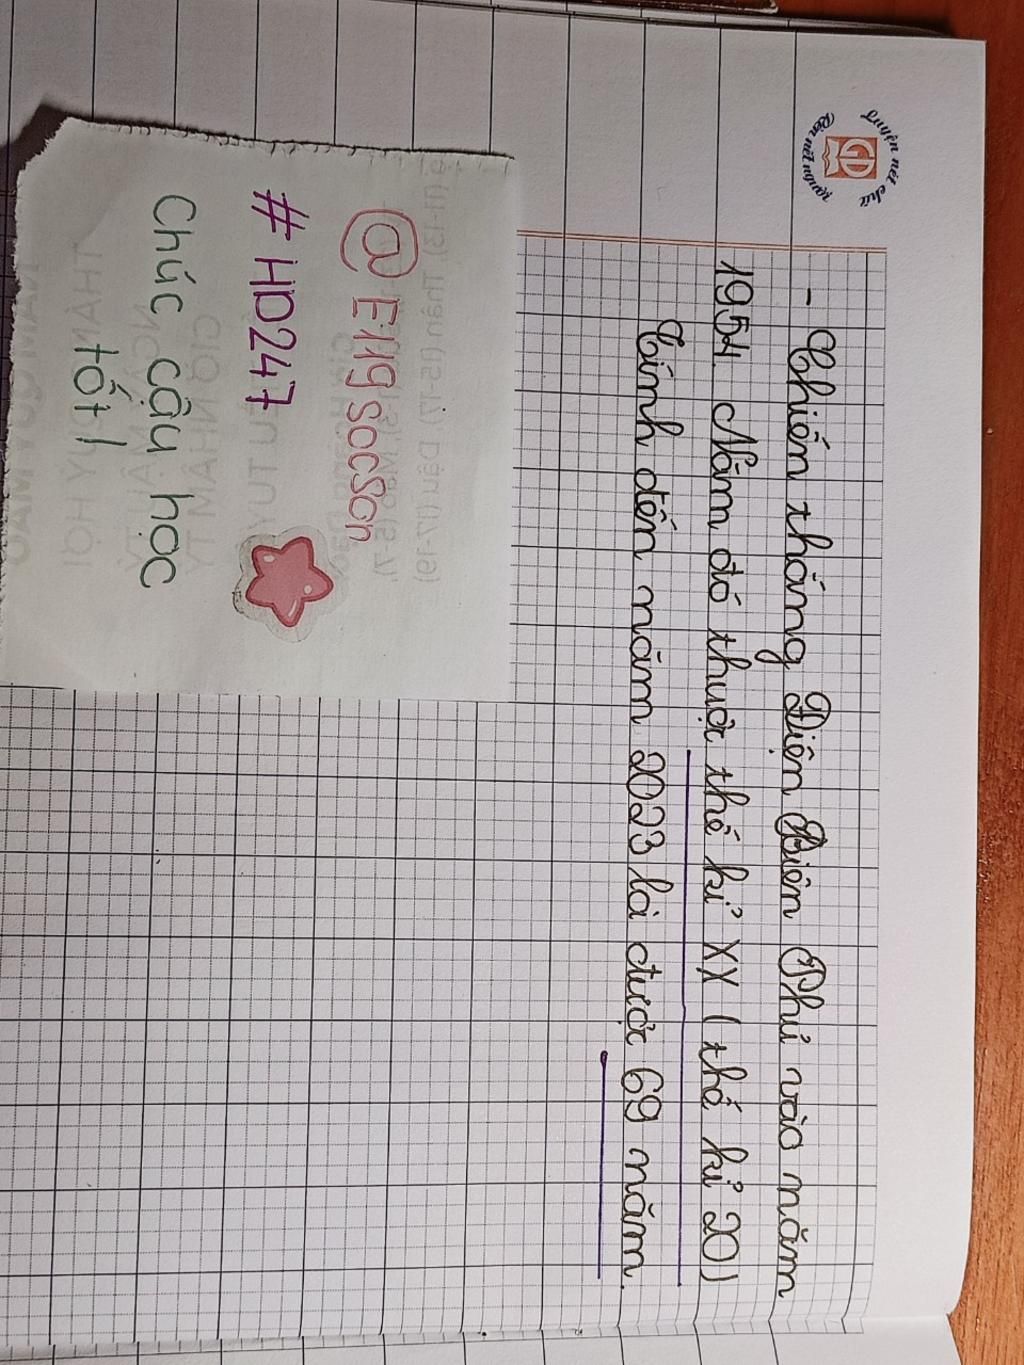 Luyện nét chữ
Rèn nết người
GD
- Chiến thắng Điện Biên Phủ vào năm
1954. Năm đó thuộc thế kỉ XX (thế kỉ 20)
Tính đến năm 2023 là được 69 năm.
@E11gsocson
#HD247
Chúc cậu học
tốt!